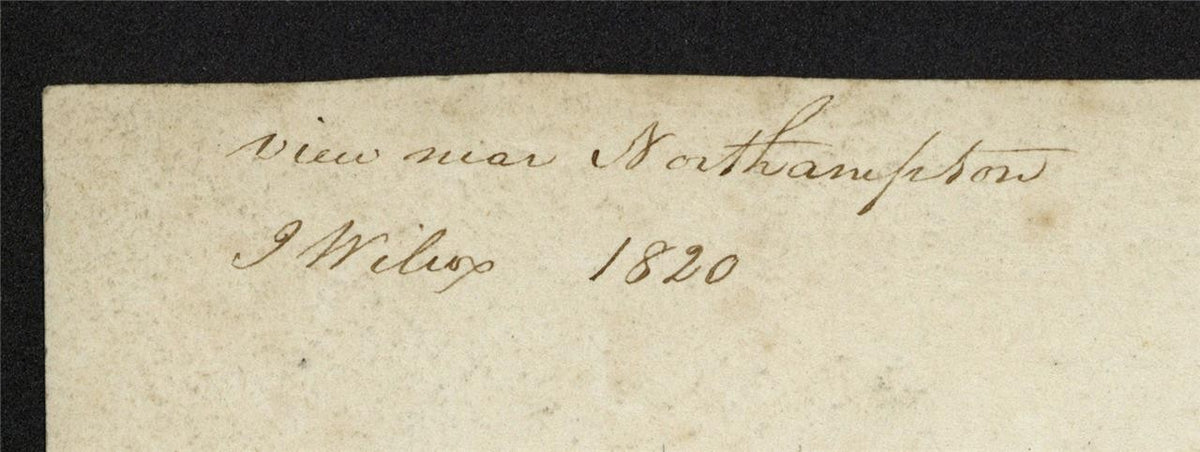 view near Northampton
J Wilcox 1820